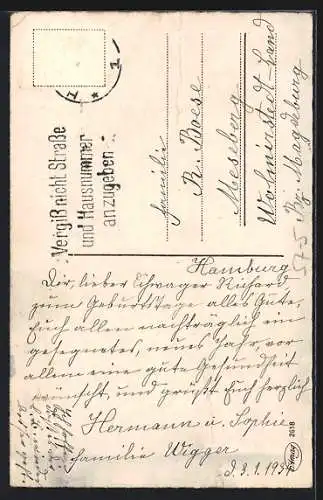 Vergiß nicht Straße
und Hausnummer
anzugeben
Familie
R. Boese
Meseberg
Wolmirstedt-Land
Bz. Magdeburg
Hamburg
Dir, lieber Schwager Richard
zum Geburtstage alles Gute,
Euch allen nachträglich ein
gesegnetes, neues Jahr, vor
allem eine gute Gesundheit
wünscht, und grüßt Euch herzlich
Hermann u. Sophie
Familie Wigger
d. 3. 1. 1951
3518